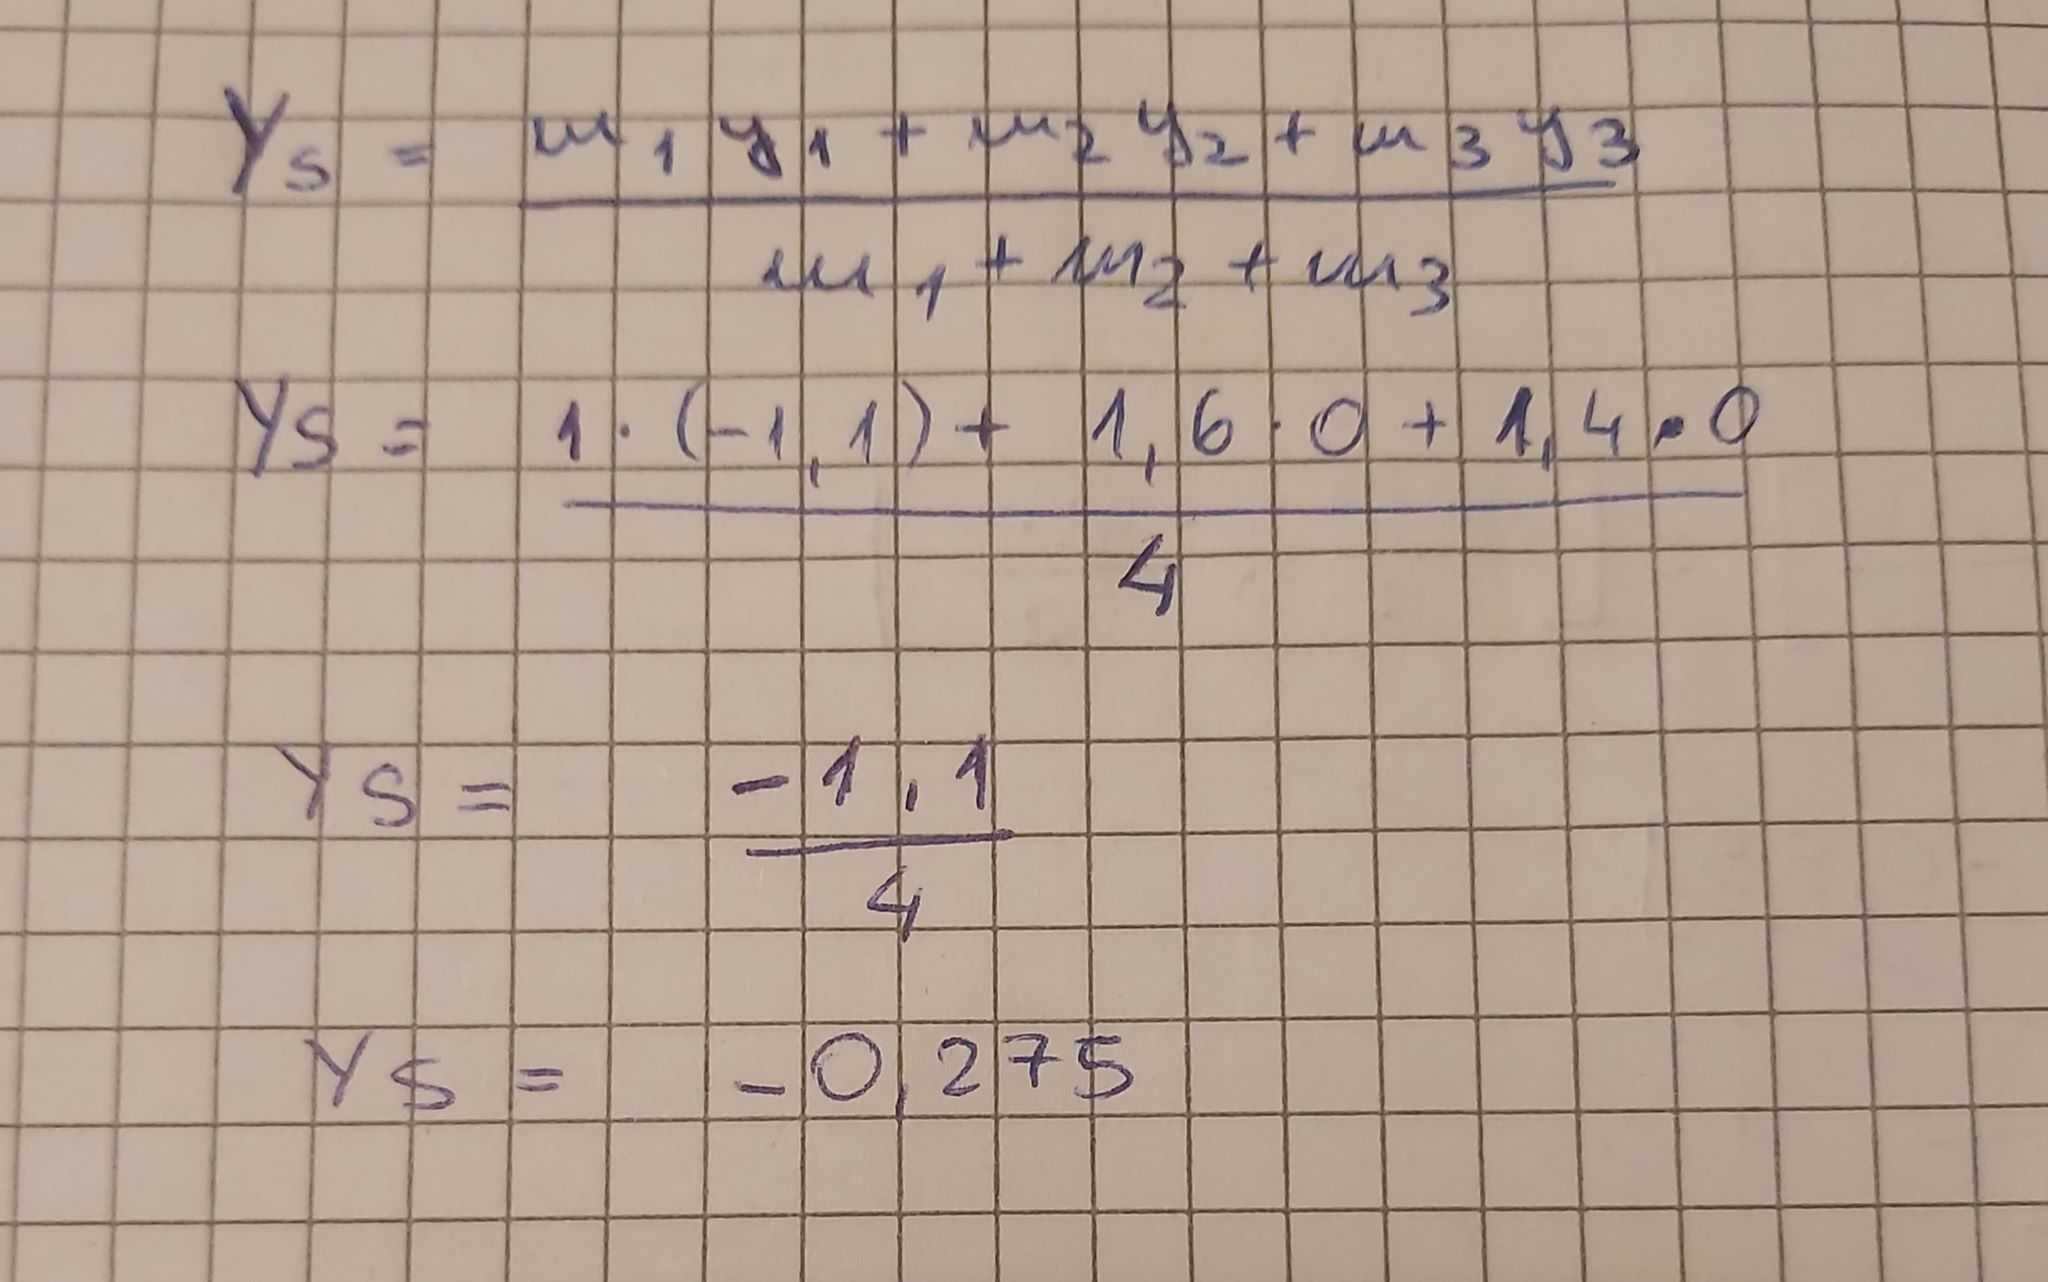 Ys = m1 y1 + m2 y2 + m3 y3
m1 + m2 + m3
Ys = 1 · (-1,1) + 1,6 · 0 + 1,4 · 0
4
Ys = -1,1
4
Ys = -0,275